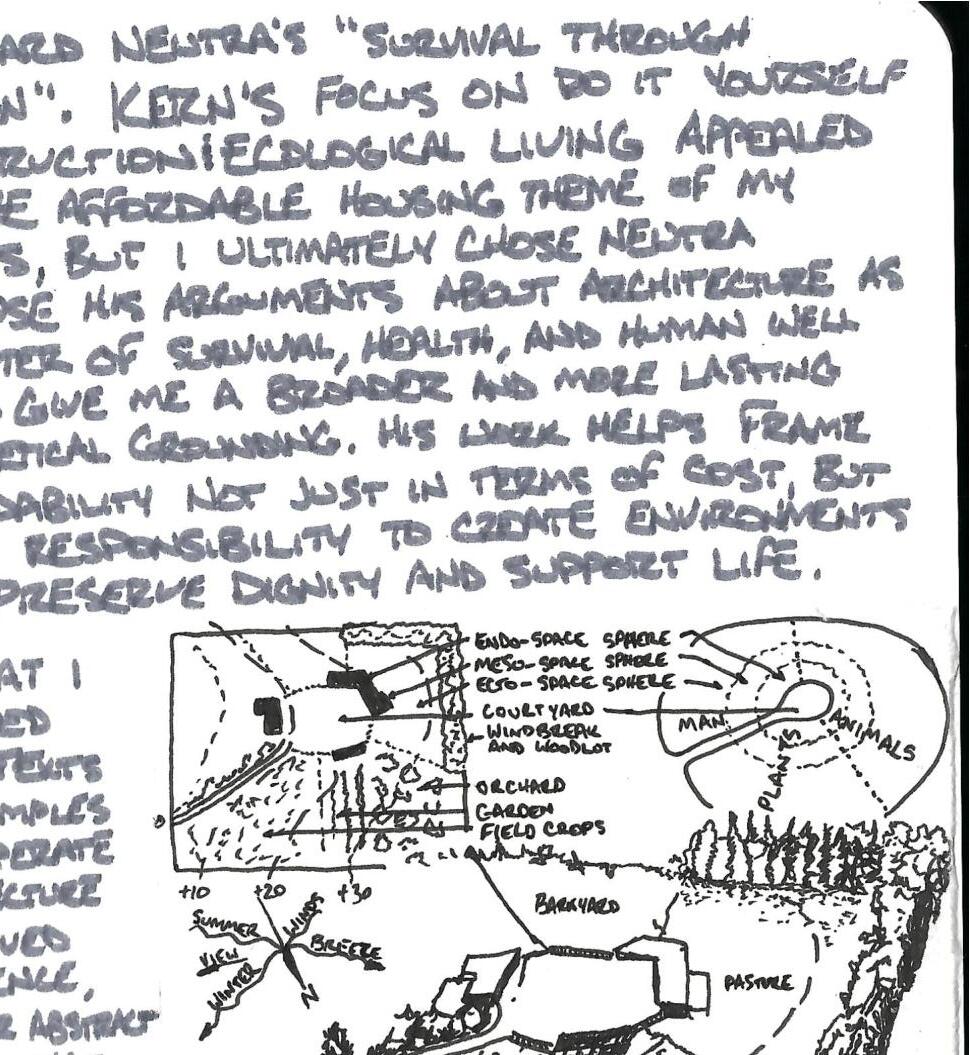 ARD NEUTRA'S "SURVIVAL THROUGH
N". KERN'S FOCUS ON DO IT YOURSELF
RUCTION & ECOLOGICAL LIVING APPEALED
E AFFORDABLE HOUSING THEME OF MY
S, BUT I ULTIMATELY CHOSE NEUTRA
SE HIS ARGUMENTS ABOUT ARCHITECTURE AS
TER OF SURVIVAL, HEALTH, AND HUMAN WELL
GIVE ME A BROADER AND MORE LASTING
ETICAL GROUNDING. HIS WORK HELPS FRAME
DABILITY NOT JUST IN TERMS OF COST, BUT
RESPONSIBILITY TO CREATE ENVIRONMENTS
PRESERVE DIGNITY AND SUPPORT LIFE.
AT I
ED
TEXTS
MPLES
PERATE
CTURE
UED
ENCE,
R ABSTRACT
ENDO-SPACE SPHERE
MESO-SPACE SPHERE
ECTO-SPACE SPHERE
COURTYARD
WINDBREAK
AND WOODLOT
ORCHARD
GARDEN
FIELD CROPS
MAN
ANIMALS
PLANTS
+10 +20 +30
SUMMER
WINDS
BREEZE
VIEW
WINTER
N
BARNYARD
PASTURE